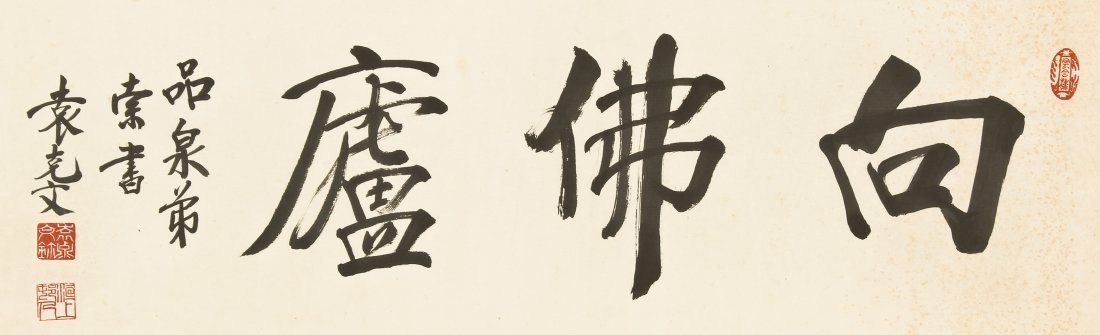 向佛廬
品泉弟
索書
袁克文